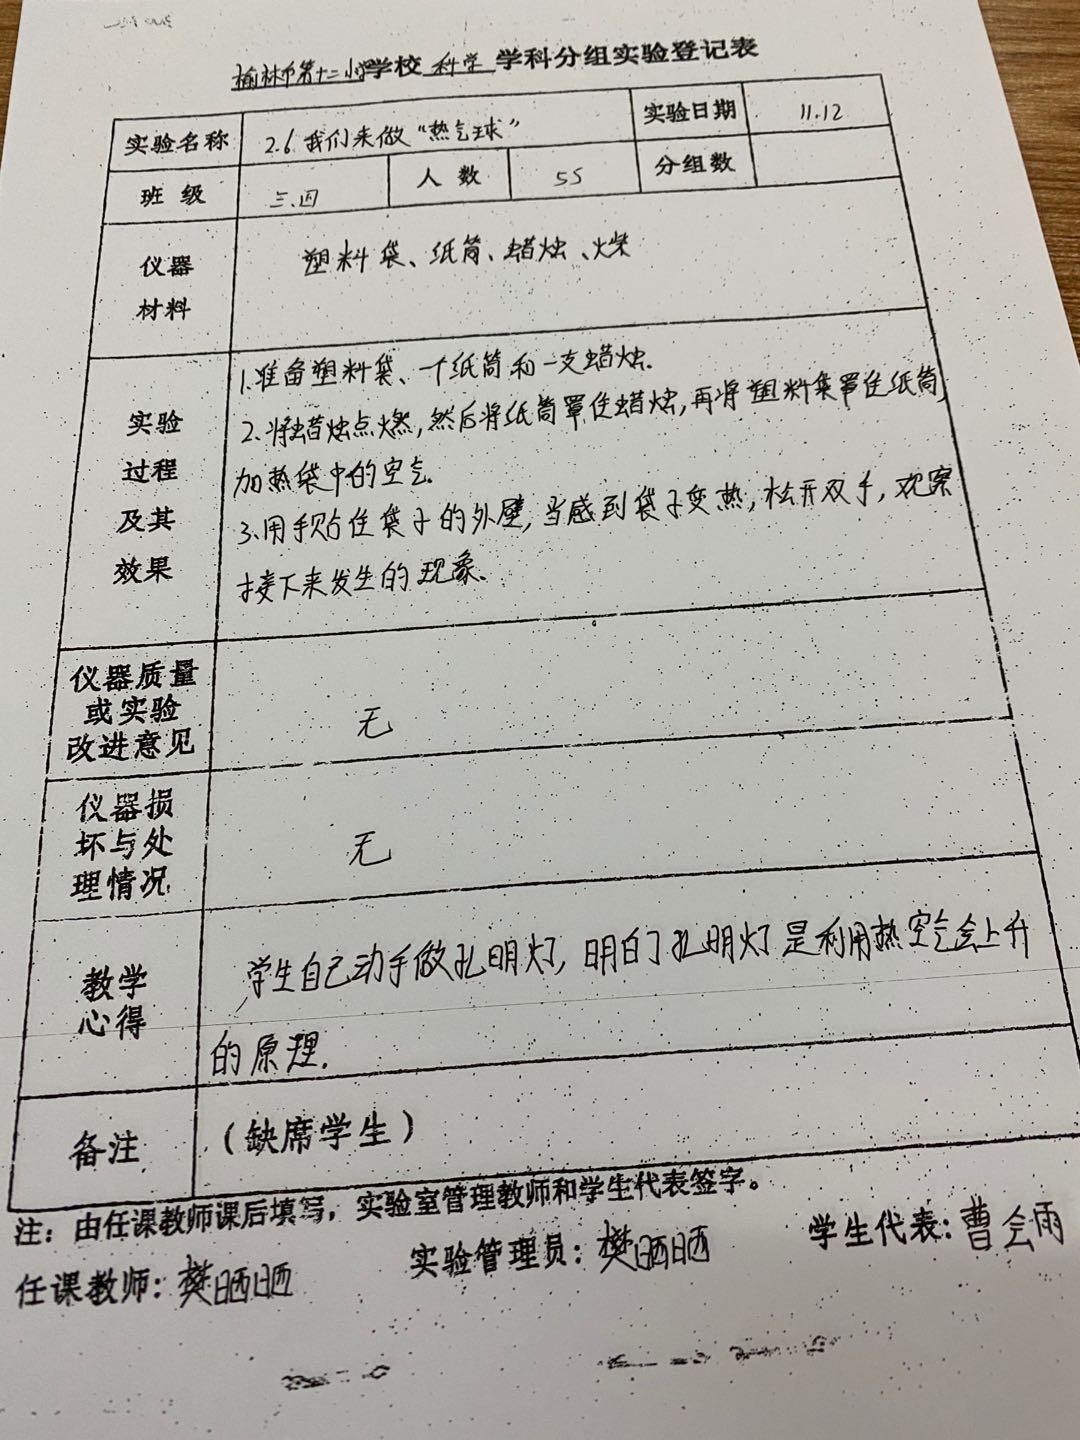 榆林市第十二小学校 科学 学科分组实验登记表
实验名称 2.6我们来做“热气球” 实验日期 11.12
班 级 三.四 人 数 55 分组数
仪器材料 塑料袋、纸筒、蜡烛、火柴
实验过程及其效果
1.准备塑料袋、个纸筒和一支蜡烛.
2.将蜡烛点燃,然后将纸筒罩住蜡烛,再将塑料袋罩住纸筒,
加热袋中的空气.
3.用手贴住袋子的外壁,当感到袋子变热,松开双手,观察
接下来发生的现象.
仪器质量或实验改进意见 无
仪器损坏与处理情况 无
教学心得
学生自己动手做孔明灯,明白了孔明灯是利用热空气会上升
的原理.
备注 （缺席学生）
注：由任课教师课后填写，实验室管理教师和学生代表签字。
任课教师：樊晒晒 实验管理员：樊晒晒 学生代表：曹会雨